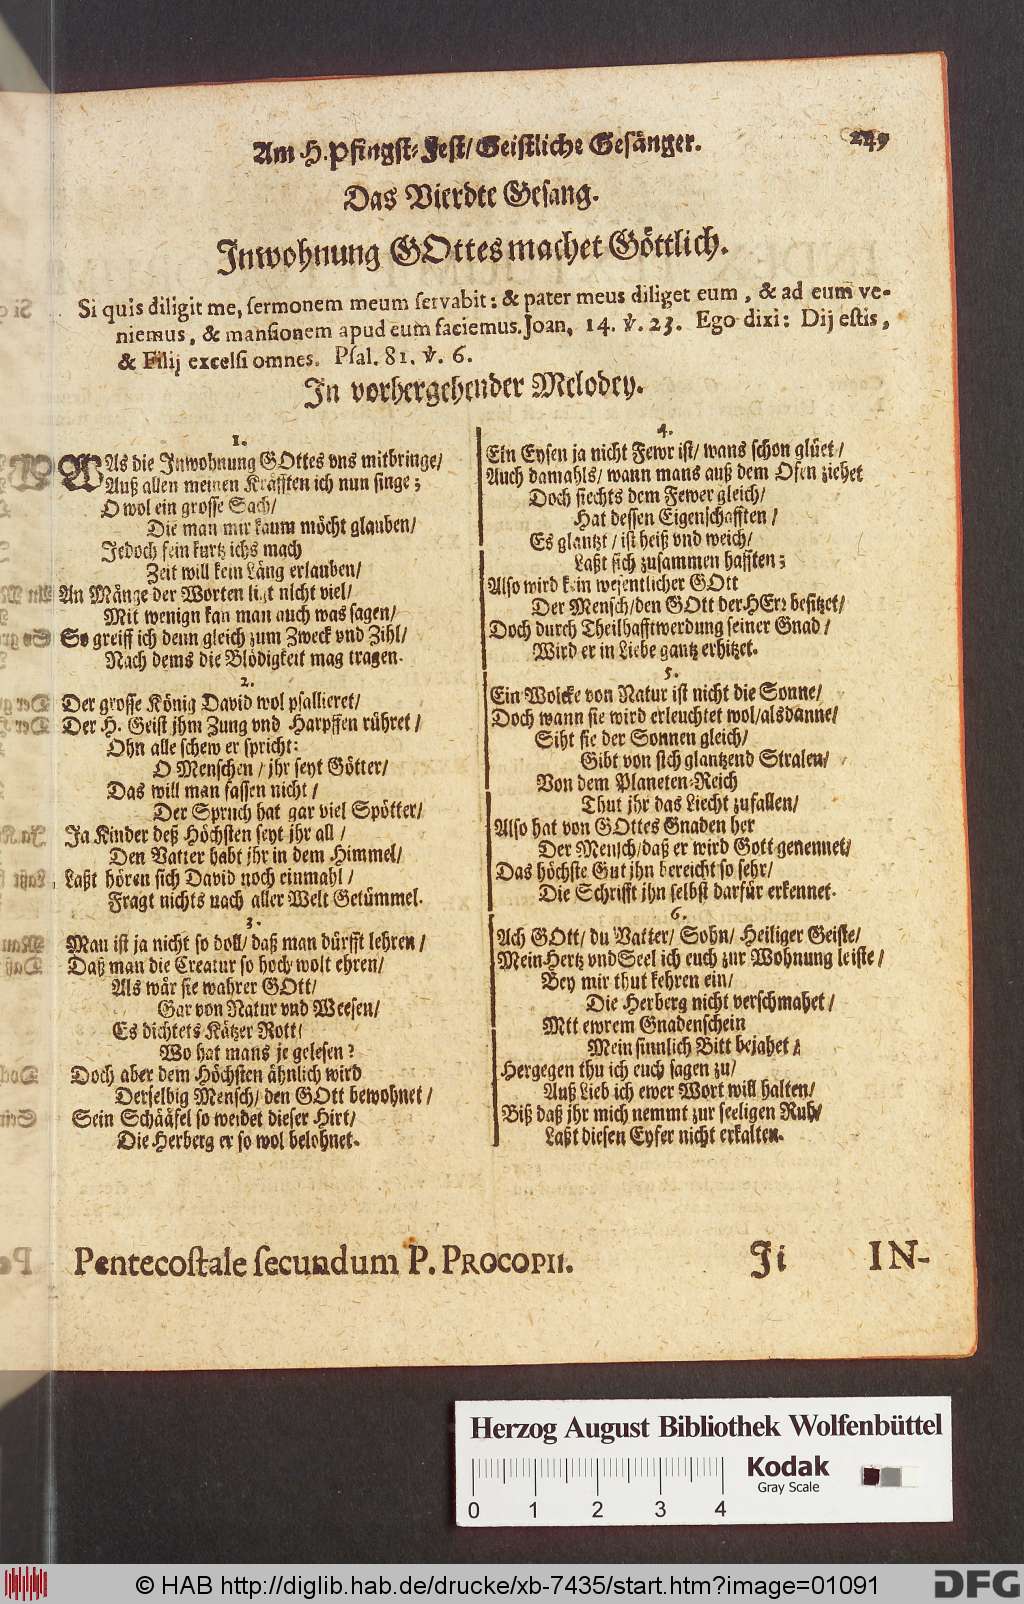 Am H. Pfingst-Fest/ Geistliche Gesänger. 249
Das Vierdte Gesang.
Inwohnung GOttes machet Göttlich.
Si quis diligit me, sermonem meum servabit: & pater meus diliget eum, & ad eum ve-
niemus, & mansionem apud eum faciemus. Joan. 14. v. 23. Ego dixi: Dij estis,
& Filij excelsi omnes. Psal. 81. v. 6.
In vorhergehender Melodey.
1.
WAs die Inwohnung GOttes vns mitbringe/
Auß allen meinen Kräfften ich nun singe;
O wol ein grosse Sach/
Die man mir kaum möcht glauben/
Jedoch fein kurtz ichs mach
Zeit will kein Läng erlauben/
An Mänge der Worten ligt nicht viel/
Mit wenign kan man auch was sagen/
So greiff ich denn gleich zum Zweck vnd Zihl/
Nach dems die Blödigkeit mag tragen.
2.
Der grosse König David wol psallieret/
Der H. Geist jhm Zung vnd Harpffen rühret/
Ohn alle schew er spricht:
O Menschen/ jhr seyt Götter/
Das will man fassen nicht/
Der Spruch hat gar viel Spötter/
Ja Kinder deß Höchsten seyt jhr all/
Den Vatter habt jhr in dem Himmel/
Laßt hören sich David noch einmahl/
Fragt nichts nach aller Welt Getümmel.
3.
Man ist ja nicht so doll/ daß man dürfft lehren/
Daß man die Creatur so hoch wolt ehren/
Als wär sie wahrer GOtt/
Gar von Natur vnd Weesen/
Es dichtets Kätzer Rott/
Wo hat mans je gelesen?
Doch aber dem Höchsten ähnlich wird
Derselbig Mensch/ den GOtt bewohnet/
Sein Schääfel so weidet dieser Hirt/
Die Herberg er so wol belohnet.
4.
Ein Eysen ja nicht Fewr ist/ wans schon glüet/
Auch damahls/ wann mans auß dem Ofen ziehet
Doch siechts dem Fewer gleich/
Hat dessen Eigenschafften/
Es glantzt/ ist heiß vnd weich/
Laßt sich zusammen hafften;
Also wird kein wesentlicher GOtt
Der Mensch/ den GOtt der HErr besitzet/
Doch durch Theilhafftwerdung seiner Gnad/
Wird er in Liebe gantz erhitzet.
5.
Ein Wolcke von Natur ist nicht die Sonne/
Doch wann sie wird erleuchtet wol/ alsdanne/
Siht sie der Sonnen gleich/
Gibt von sich glantzend Stralen/
Von dem Planeten-Reich
Thut jhr das Liecht zufallen/
Also hat von GOttes Gnaden her
Der Mensch/ daß er wird Gott genennet/
Das höchste Gut jhn bereicht so sehr/
Die Schrifft jhn selbst darfür erkennet.
6.
Ach GOtt/ du Vatter/ Sohn/ Heiliger Geiste/
Mein Hertz vnd Seel ich euch zur Wohnung leiste/
Bey mir thut kehren ein/
Die Herberg nicht verschmahet/
Mit ewrem Gnadenschein
Mein sinnlich Bitt bejahet;
Hergegen thu ich euch sagen zu/
Auß Lieb ich ewer Wort will halten/
Biß daß jhr mich nemmt zur seeligen Ruh/
Laßt diesen Eyfer nicht erkalten.
Pentecostale secundum P. PROCOPII. Ii IN-
Herzog August Bibliothek Wolfenbüttel
Kodak
Gray Scale
0 1 2 3 4
© HAB http://diglib.hab.de/drucke/xb-7435/start.htm?image=01091
DFG